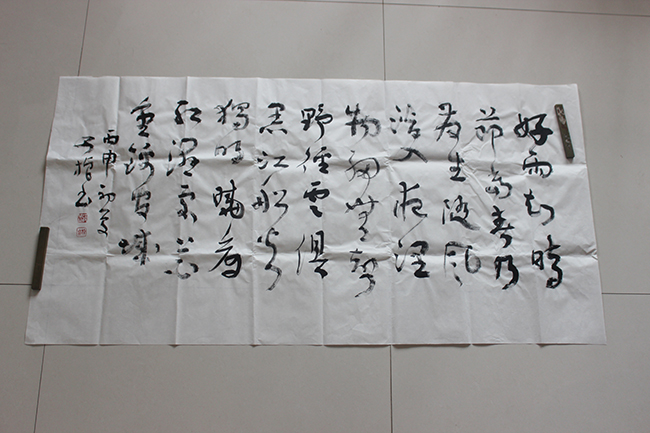 好雨知時
節當春乃
發生隨風
潛入夜潤
物細無聲
野徑雲俱
黑江船火
獨明曉看
紅濕處花
重錦官城
丙申初夏
書